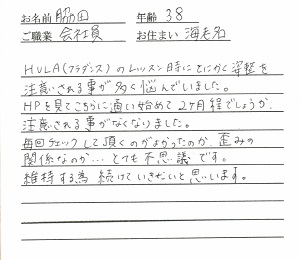 お名前 脇田 年齢 38
ご職業 会社員 お住まい 海老名
HULA(フラダンス)のレッスン時にとにかく姿勢を
注意される事が多く悩んでいました。
HPを見てこちらに通い始めて2ヶ月程でしょうか、
注意される事がなくなりました。
毎回チェックして頂くのがよかったのか、歪みの
関係なのか…とても不思議です。
維持する為 続けていきたいと思います。